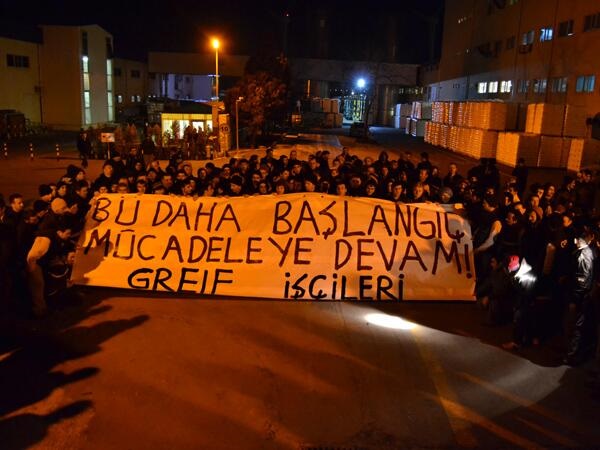 BU DAHA BAŞLANGIÇ
MÜCADELEYE DEVAM!
GREIF İŞÇİLERİ